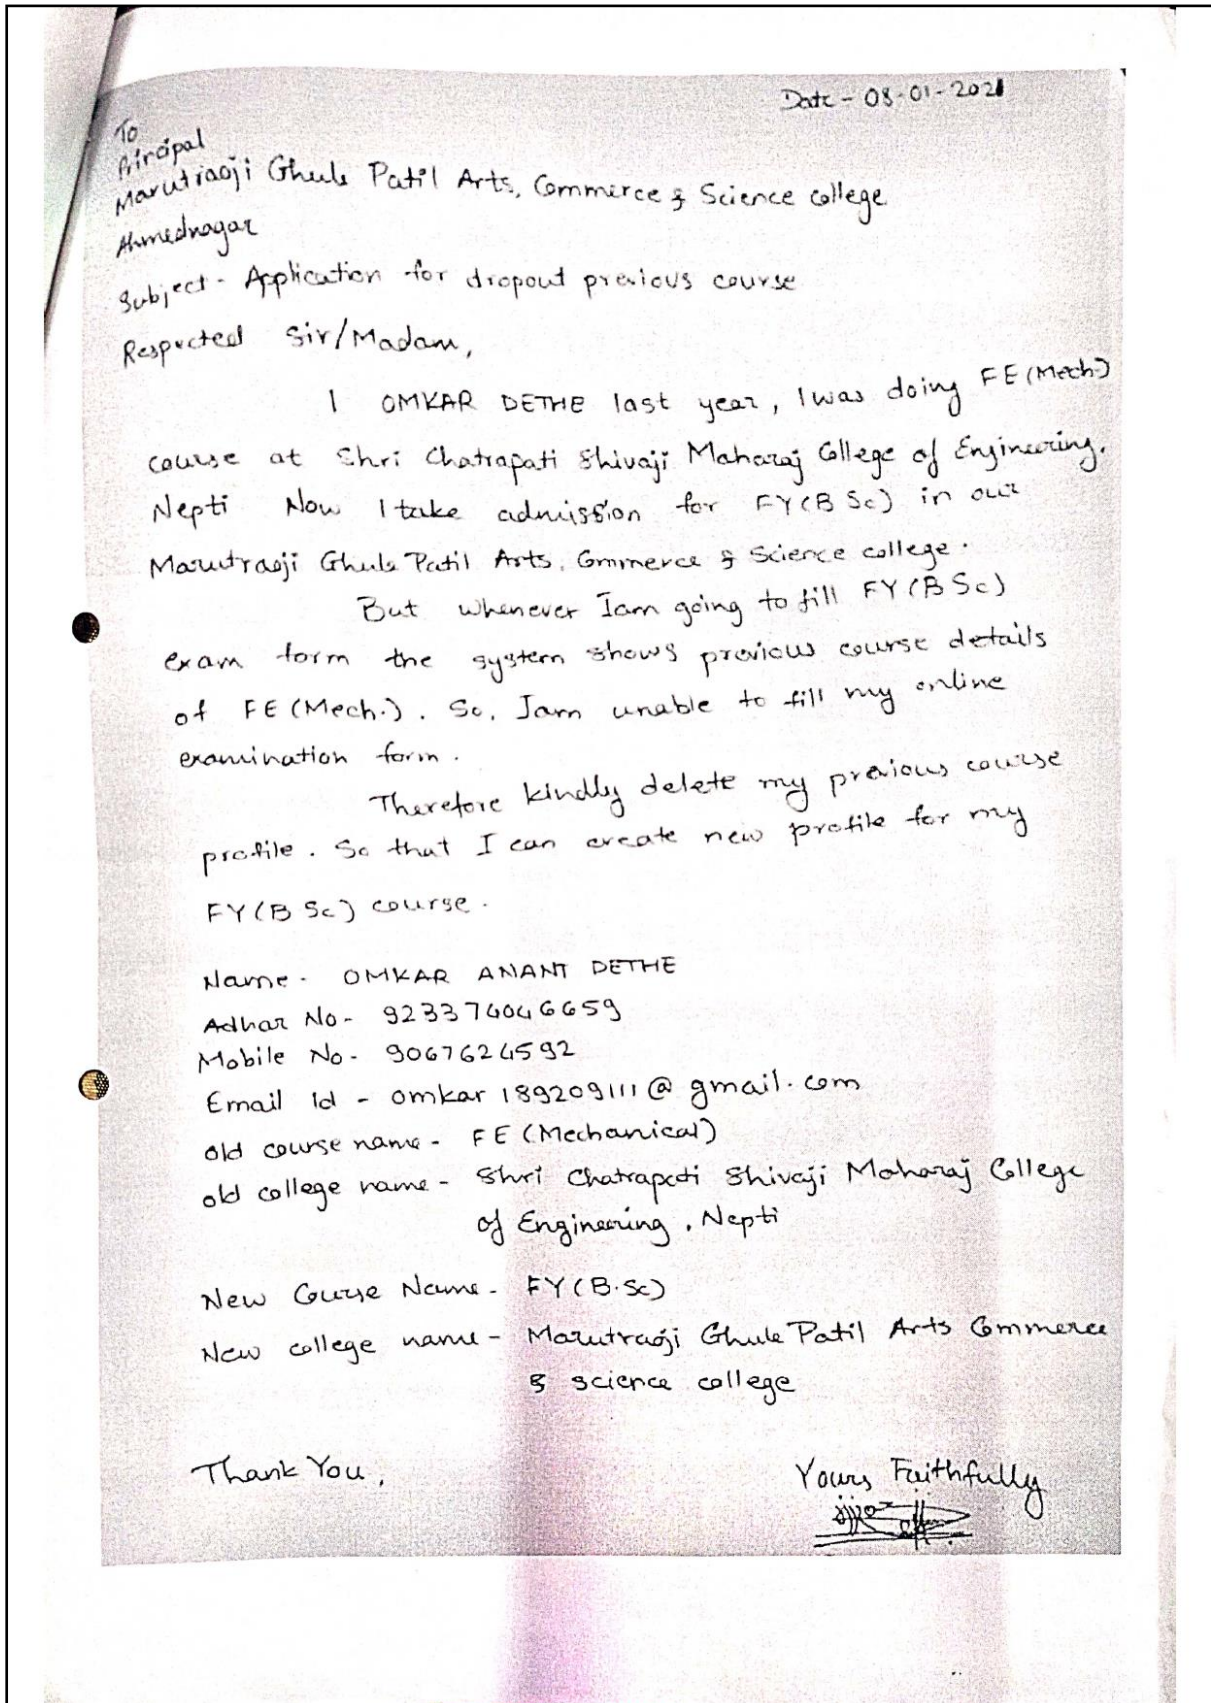 Date - 08-01-2021
To
Principal
Marutraoji Ghule Patil Arts, Commerce & Science college
Ahmednagar
Subject - Application for dropout previous course
Respected Sir/Madam,
I OMKAR DETHE last year, I was doing FE (Mech.)
course at Shri Chatrapati Shivaji Maharaj College of Engineering.
Nepti Now I take admission for FY (B Sc) in our
Marutraoji Ghule Patil Arts, Commerce & Science college.
But whenever I am going to fill FY (B Sc)
exam form the system shows previous course details
of FE (Mech.). So, I am unable to fill my online
examination form.
Therefore kindly delete my previous course
profile. So that I can create new profile for my
FY (B Sc) course.
Name - OMKAR ANANT DETHE
Adhar No - 923374046659
Mobile No - 9067624592
Email Id - omkar189209111@gmail.com
old course name - FE (Mechanical)
old college name - Shri Chatrapati Shivaji Maharaj College
of Engineering, Nepti
New Course Name - FY (B.Sc)
New college name - Marutraoji Ghule Patil Arts Commerce
& science college
Thank You,
Yours Faithfully